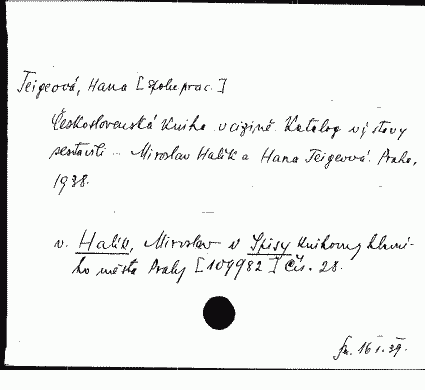 Teigeová, Hana [spoluprac.]
Československá kniha v cizině. Katalog výstavy
sestavili ... Miroslav Halík a Hana Teigeová. Praha,
1938.
v. Halík, Miroslav v Spisy knihovny hlavní-
ho města Prahy [109982] čís. 28.
16 I. 39.